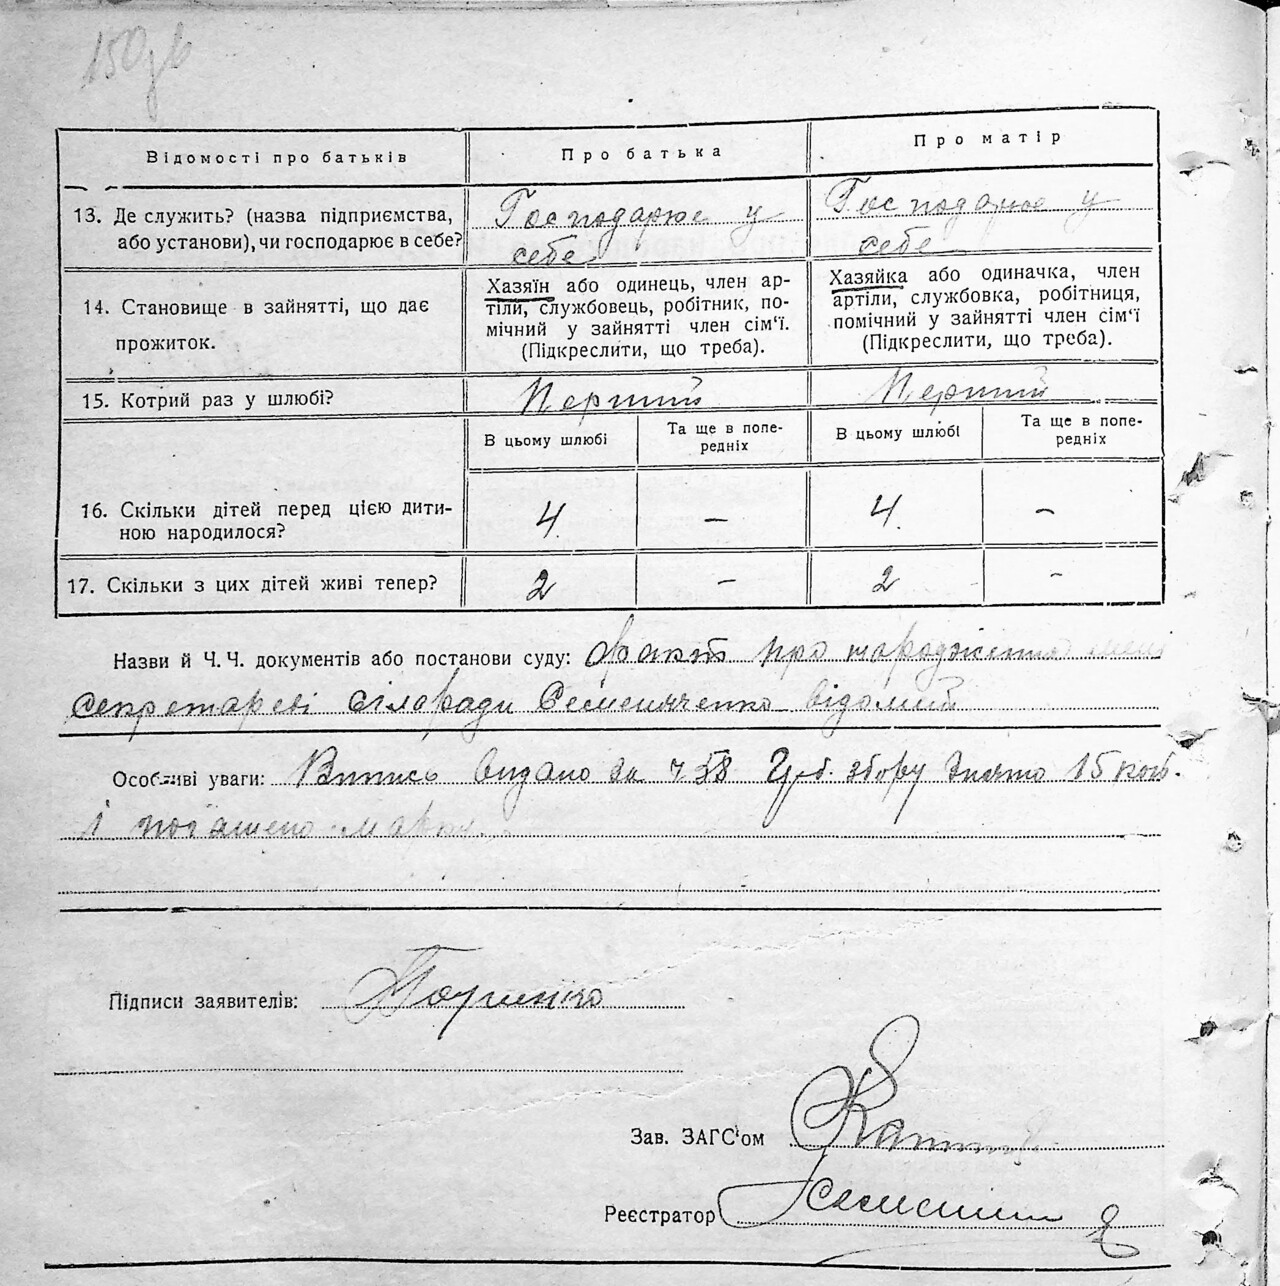 150 зв
Відомості про батьків
Про батька
Про матір
13. Де служить? (назва підприємства,
або установи), чи господарює в себе?
Господарює у
себе
Господарює у
себе
14. Становище в зайнятті, що дає
прожиток.
Хазяїн або одинець, член ар-
тіли, службовець, робітник, по-
мічний у зайнятті член сім'ї.
(Підкреслити, що треба).
Хазяйка або одиначка, член
артіли, службовка, робітниця,
помічний у зайнятті член сім'ї
(Підкреслити, що треба).
15. Котрий раз у шлюбі?
Перший
Перший
В цьому шлюбі
Та ще в попе-
редніх
В цьому шлюбі
Та ще в попе-
редніх
16. Скільки дітей перед цією дити-
ною народилося?
4
—
4
—
17. Скільки з цих дітей живі тепер?
2
—
2
-
Назви й Ч.Ч. документів або постанови суду: факт про народження мені
секретареві сілоради Семеняченко відомий
Особливі уваги: Випись видано за ч 58 Герб. збору знято 15 коп.
і погашено марки
Підписи заявителів:
Зав. ЗАГС'ом
Реєстратор